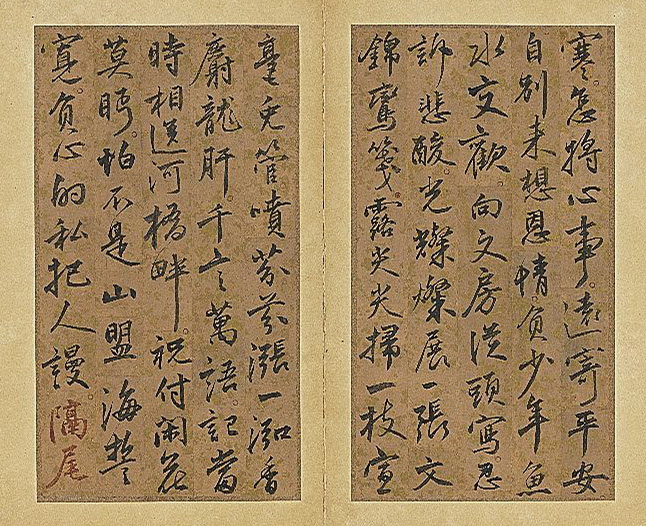 寒。怎將心事。遠寄平安
自別來想恩情。負少年魚
水文歡向文房從頭寫忍
訴悲酸。光燦燦展一張文
錦鸞箋。露尖尖掃一枝宣
毫兔管。噴芬芬漲一泓香
麝龍肝。千言萬語。記當
時相送河橋畔。祝付閑花
莫眄。怕不是山盟海誓
寬。負心的私把人謾。
隔尾